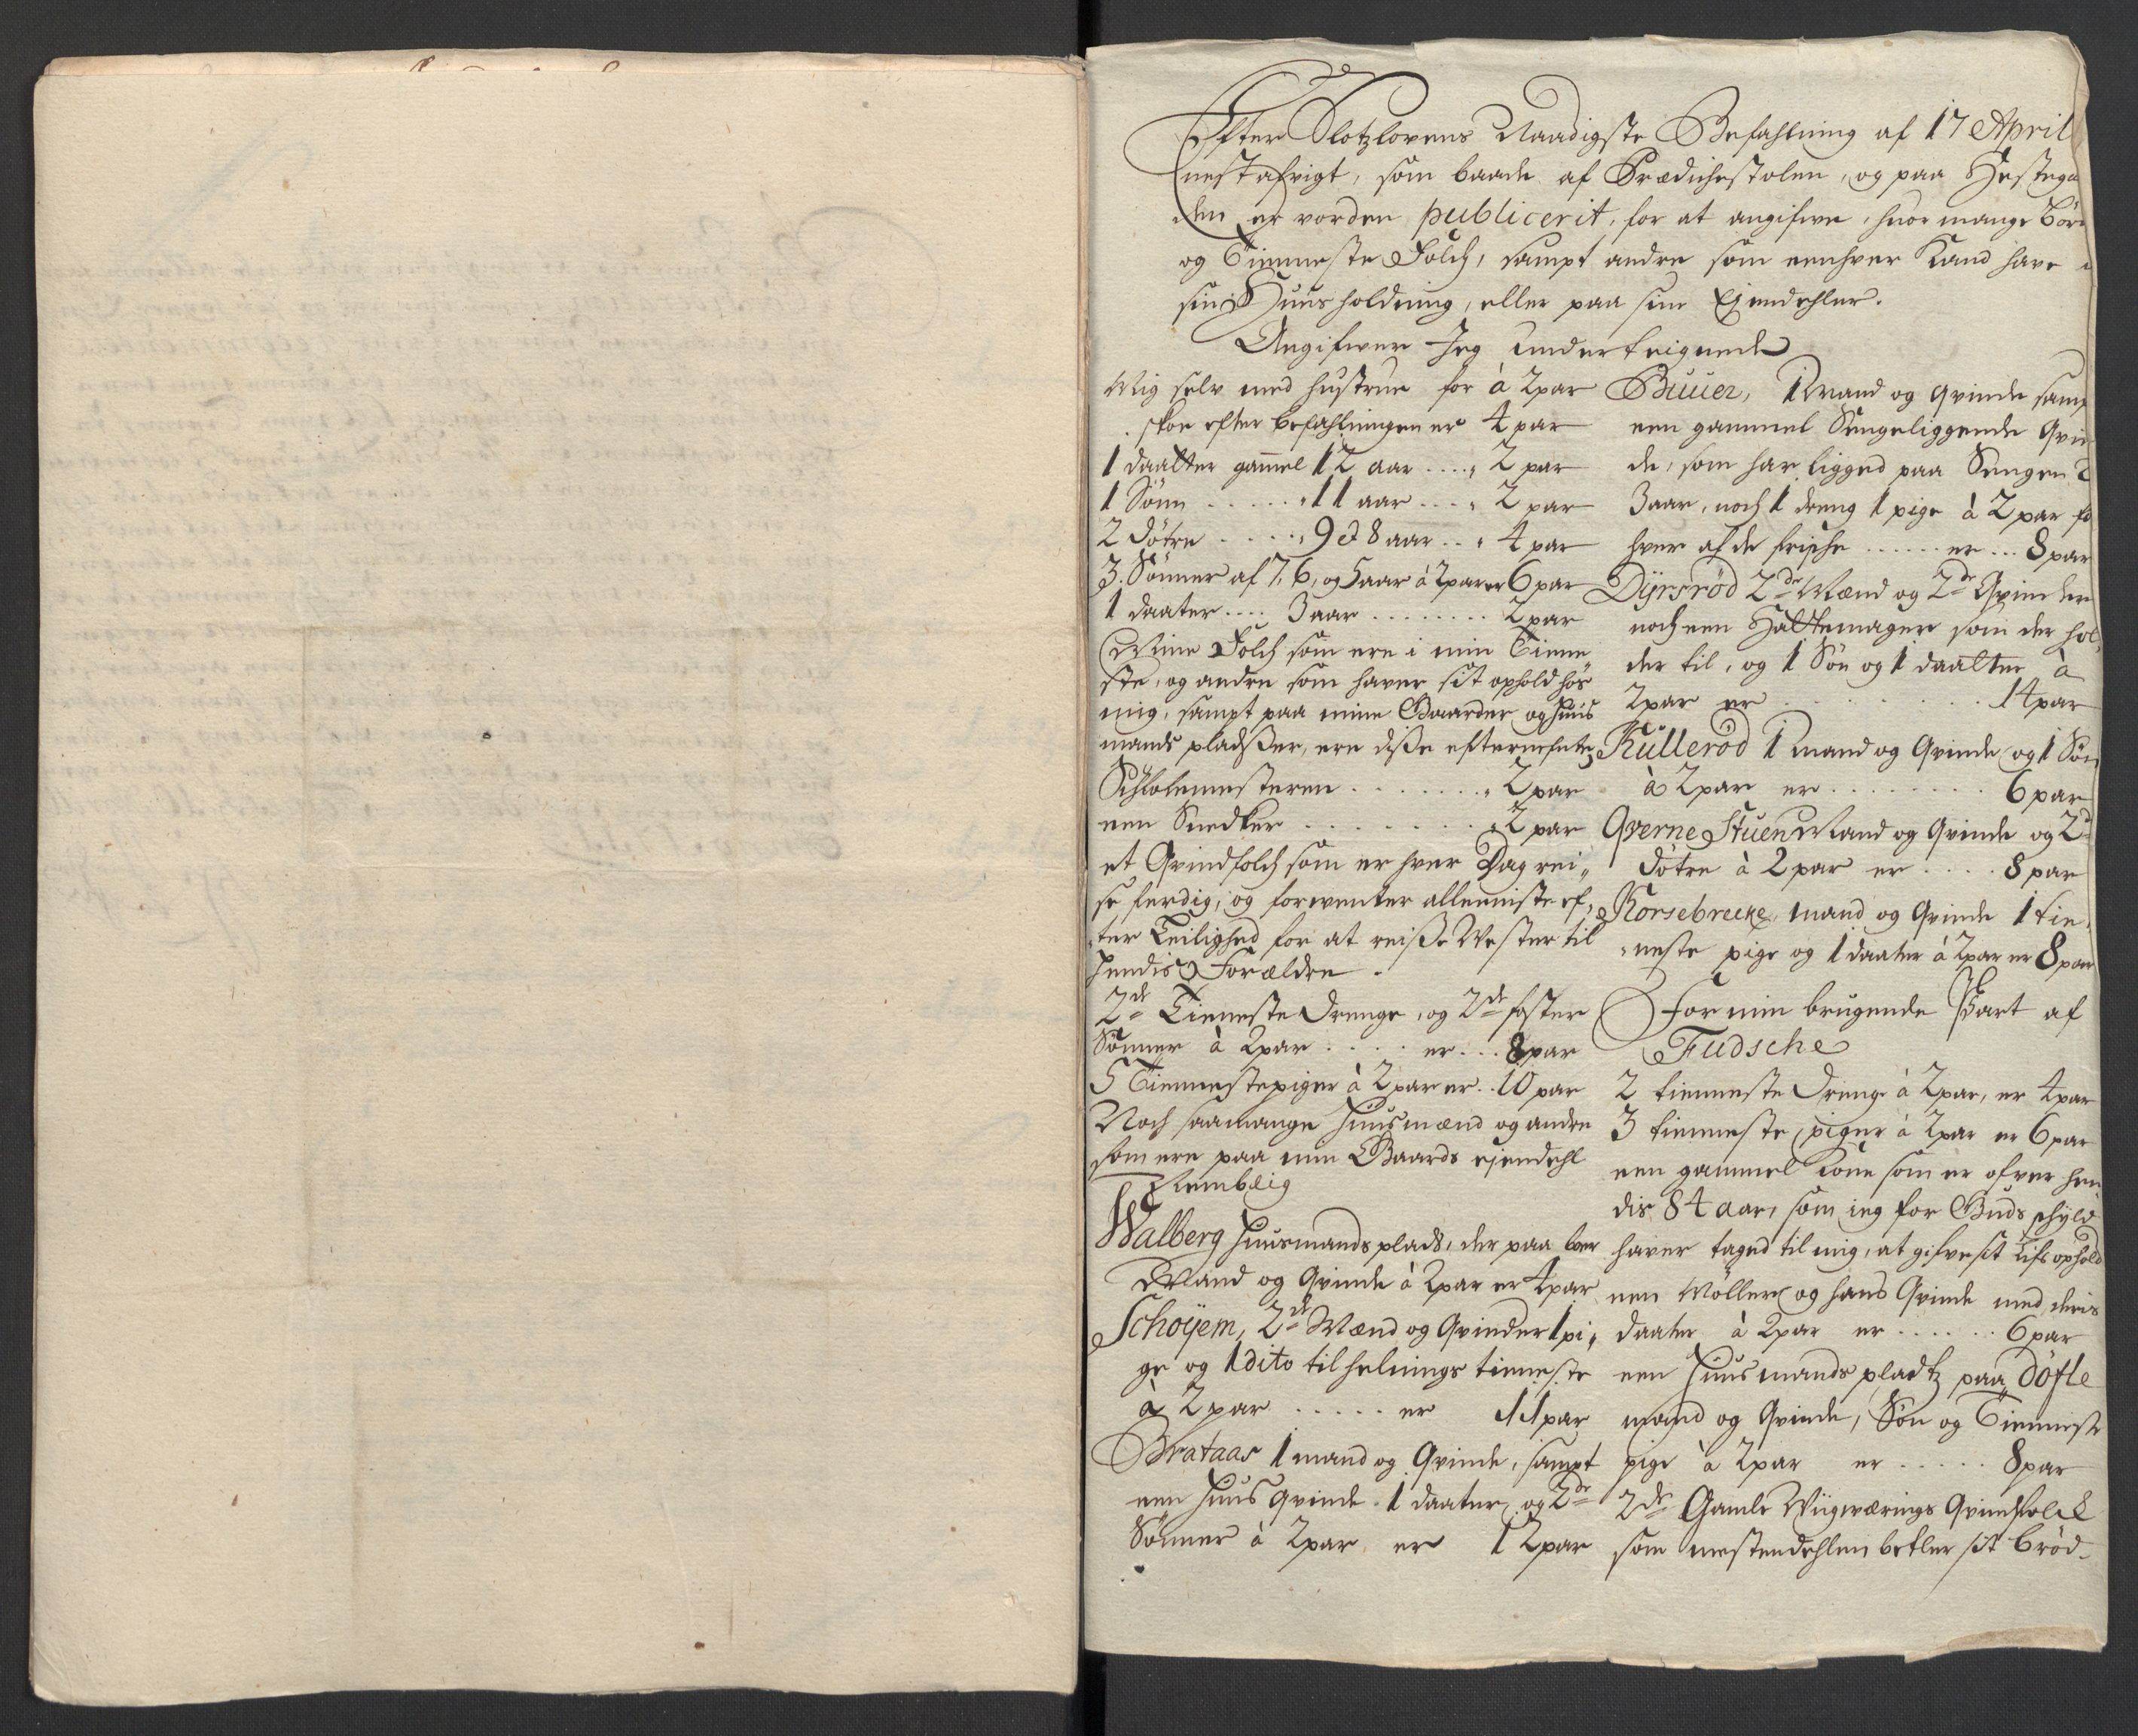 Efter Slotzlovens Naadigste Befahlning af 17 April
nestafvigt, som baade af Prædichestolen, og paa
den er vorden publicerit, for at angifve, huor mange Bör
og Tienneste Folch, sampt andre som eenhver Kand have
sin Huusholdning, eller paa sine Eiendehler.
Angifver Jeg underteignede
Mig selv med hustrue for à 2 par
skoe efter befahlningen er 4 par
1 daatter gammel 12 aar .... 2 par
1 Sönn ...... 11 aar .... 2 par
2 döttre ..... 9 et 8 aar ... 4 par
3 Sönner af 7, 6, og 5 aar à 2 par er 6 par
1 daater .... 3 aar ........ 2 par
Mine Folch som ere i min Tienne
ste, og andre som haver sit ophold hos
mig, sampt paa mine Gaarder og huus
mands pladsser, ere disse efternefnte
Schlolemesteren ....... 2 par
een Snedker ........ 2 par
et Qvindfolch som er hver Dag rei„
se ferdig, og forventer alleeniste ef„
ter Leilighed for at reisse Vester til
hendis Forældre.
2de Tieneste Drenge, og 2de foster
Sönner à 2 par .... er ... 8 par
5 Tiennestepiger à 2 par er .. 10 par
Noch saamange Huusmænd og andre
som ere paa min Gaards eiendehl
Kembeig
Walberg huusmandsplads, der paa boer
Mand og Qvinde à 2 par er 4 par
Schoyem, 2de Mænd og Qvinder 1 pi„
ge og 1 dito til helnings tienneste
à 2 par ..... er 11 par
Brataas 1 mand og Qvinde, sampt
een huus qvinde 1 daater og 2de
Sönner à 2 par er 12 par
Buuer, 1 Mand og qvinde samp
een gammel Sengeliggende Qvin
de, som har ligged paa Sengen
3 aar, noch 1 dreng 1 pige à 2 par fo
hver af de frische ..... er ... 8 par
Dyrsröd 2de Mænd og 2de Qvinder
noch een Hattemager som der hol„
der til, og 1 Sön og 1 daatter à
2 par er ......... 14 par
Kulleröd 1 mand og Qvinde og 1 Sön
à 2 par er ........ 6 par
Qverne Stuen Mand og Qvinde og 2de
döttre à 2 par er .... 8 par
Korsebrecke, mand og Qvinde 1 tie„
neste pige og 1 daater à 2 par er 8 par
For min brugende Part af
Fudsche
2 tienneste Drenge à 2 par, er 4 par
3 tienneste piger à 2 par er 6 par
een gammel Kone som er ofver hen
dis 84 aar, som ieg for Guds schyld
haver taged til mig, at gifve sit Lifs ophold
een Möller og hans Qvinde med deris
daater à 2 par er ...... 6 par
een Huusmands pladtz paa Döfle
mand og Qvinde, Sön og Tienneste
pige à 2 par er ..... 8 par
2de Gamle Qvindfolck
som mestendehlen betler sit bröd.